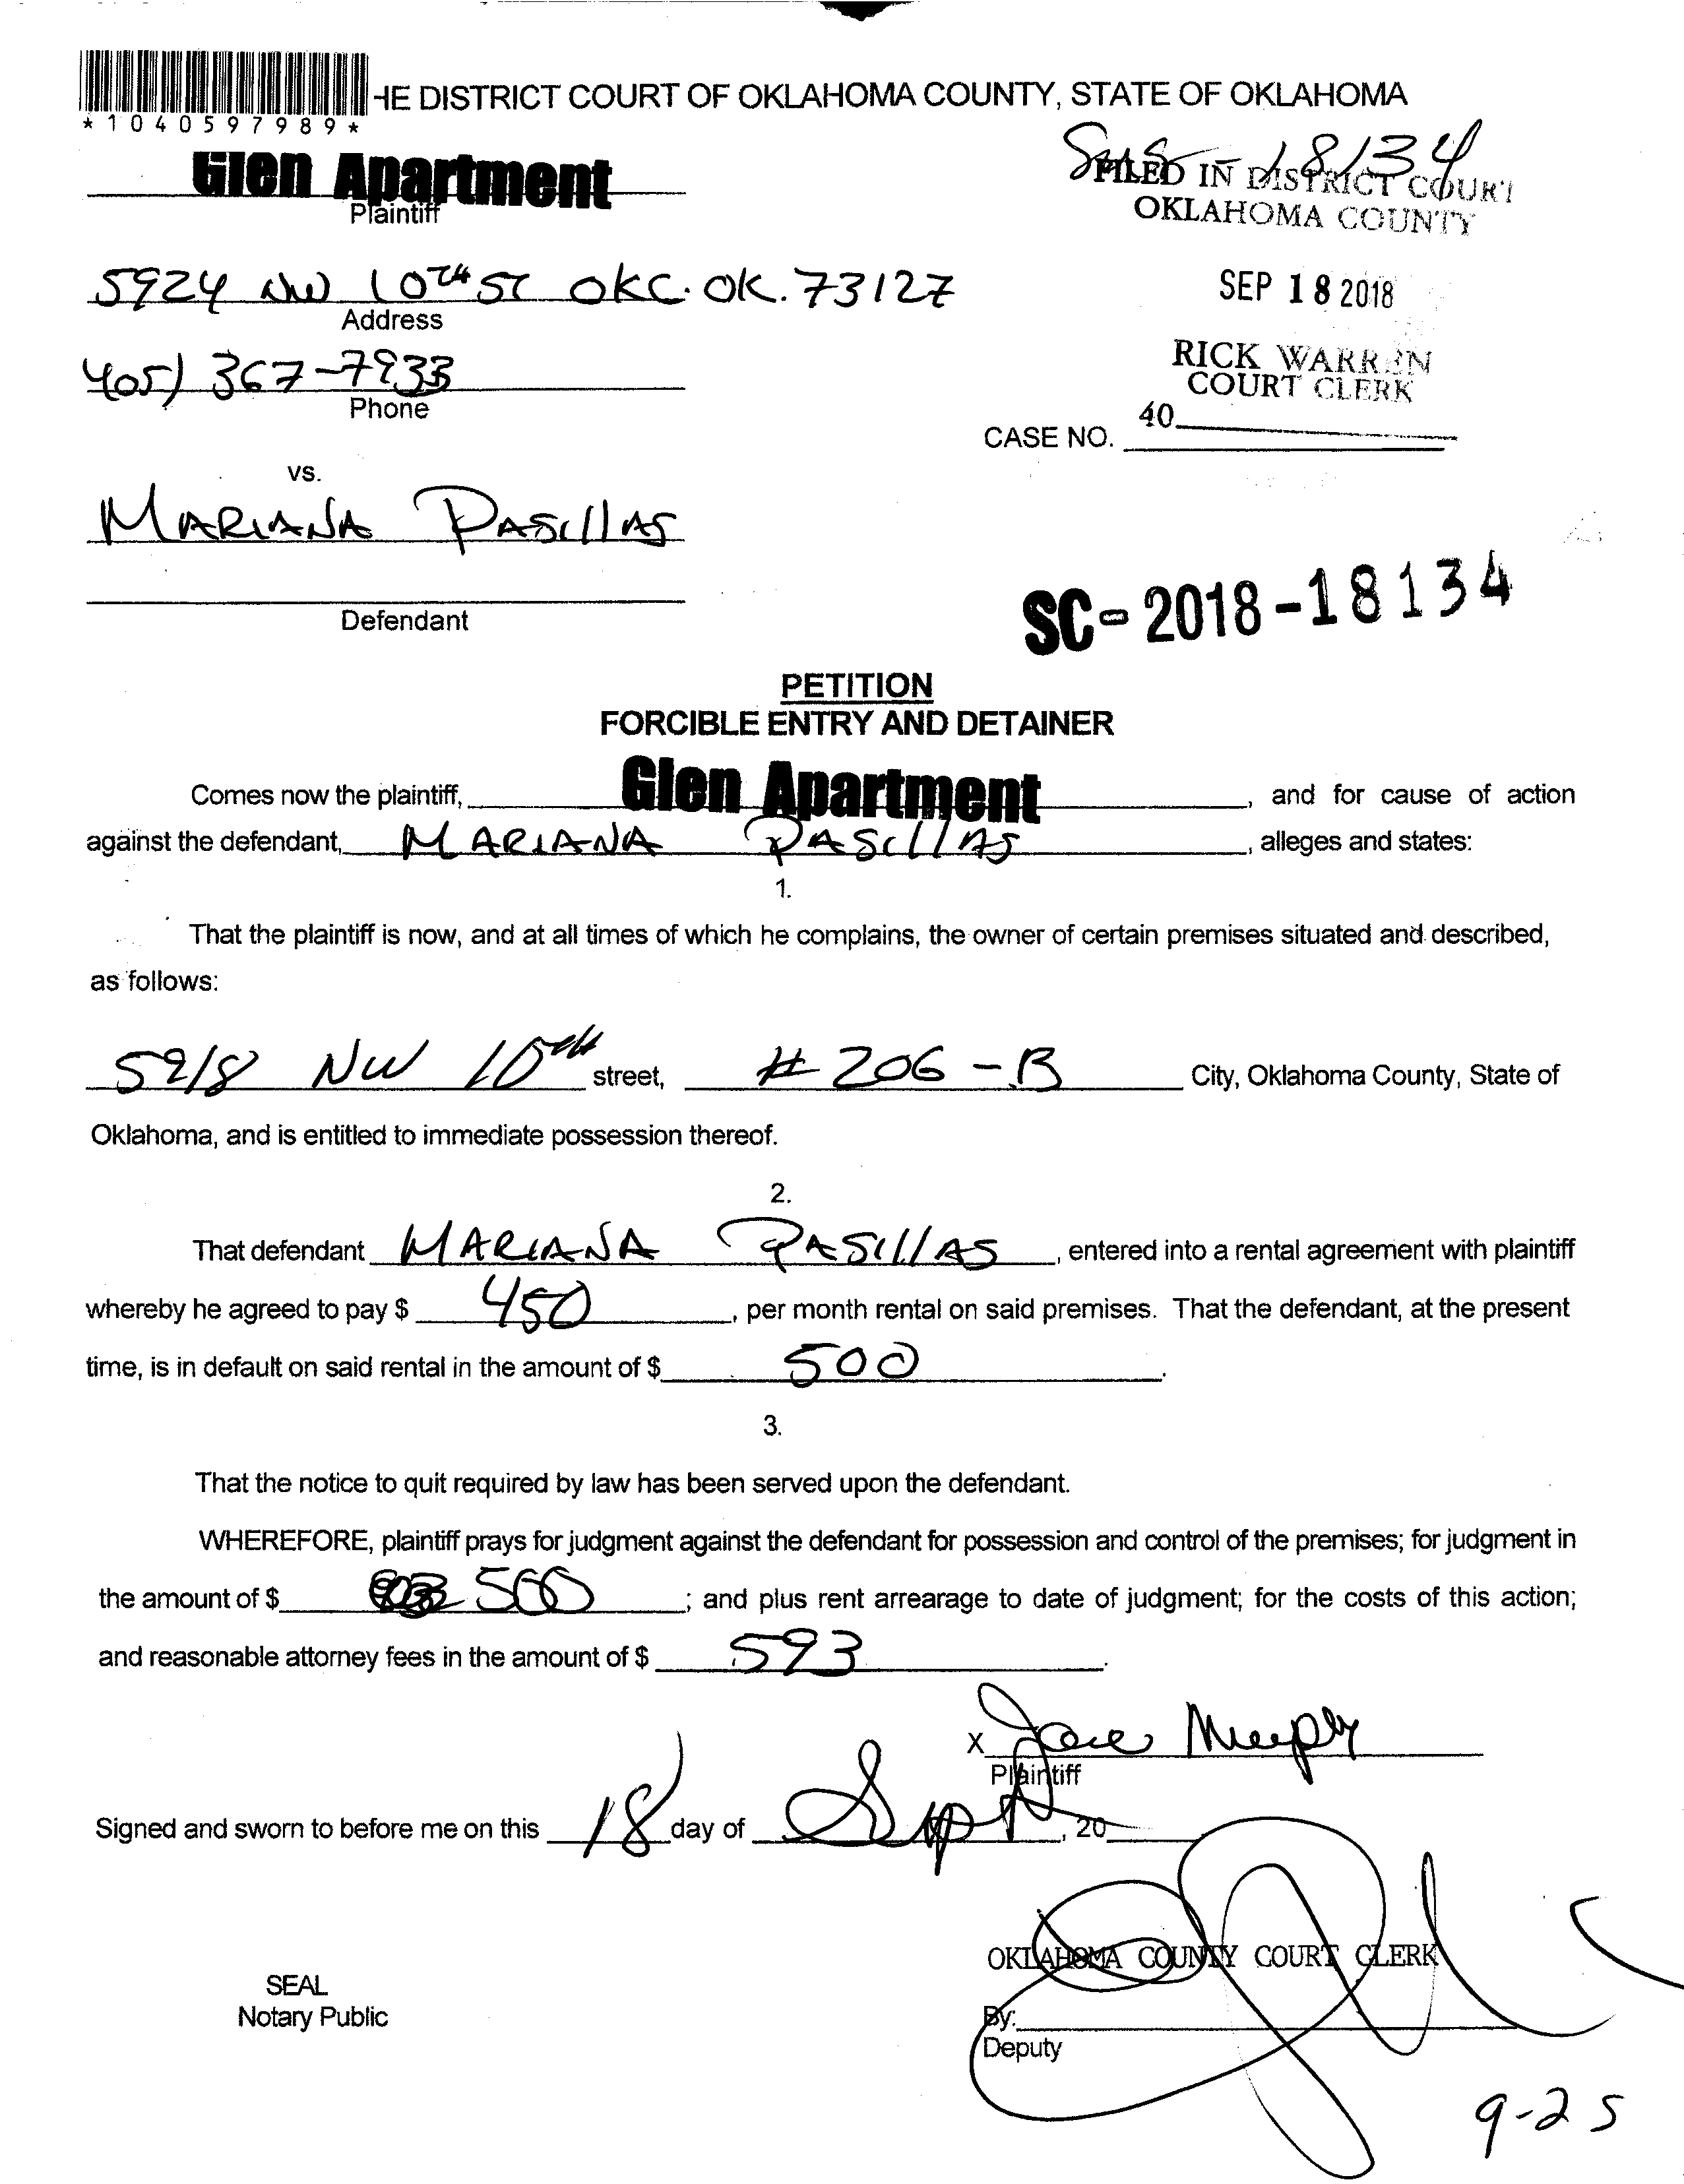 HE DISTRICT COURT OF OKLAHOMA COUNTY, STATE OF OKLAHOMA
*1040597989*
18134
Glen Apartment
Plaintiff
FILED IN DISTRICT COURT
OKLAHOMA COUNTY
5924 NW 10TH ST OKC. OK. 73127
Address
SEP 18 2018
405) 367-7933
Phone
RICK WARREN
COURT CLERK
40
CASE NO.
vs.
MARIANA PASILLAS
Defendant
SC-2018-18134
PETITION
FORCIBLE ENTRY AND DETAINER
Comes now the plaintiff, Glen Apartment, and for cause of action
against the defendant, MARIANA PASILLAS, alleges and states:
1.
That the plaintiff is now, and at all times of which he complains, the owner of certain premises situated and described,
as follows:
5918 NW 10th street, # 206-B City, Oklahoma County, State of
Oklahoma, and is entitled to immediate possession thereof.
2.
That defendant MARIANA PASILLAS, entered into a rental agreement with plaintiff
whereby he agreed to pay $ 450, per month rental on said premises. That the defendant, at the present
time, is in default on said rental in the amount of $ 500.
3.
That the notice to quit required by law has been served upon the defendant.
WHEREFORE, plaintiff prays for judgment against the defendant for possession and control of the premises; for judgment in
the amount of $ 500; and plus rent arrearage to date of judgment; for the costs of this action;
and reasonable attorney fees in the amount of $ 593.
X
Plaintiff
Signed and sworn to before me on this 18 day of Sept, 20
OKLAHOMA COUNTY COURT CLERK
SEAL
Notary Public
By:
Deputy
9-25